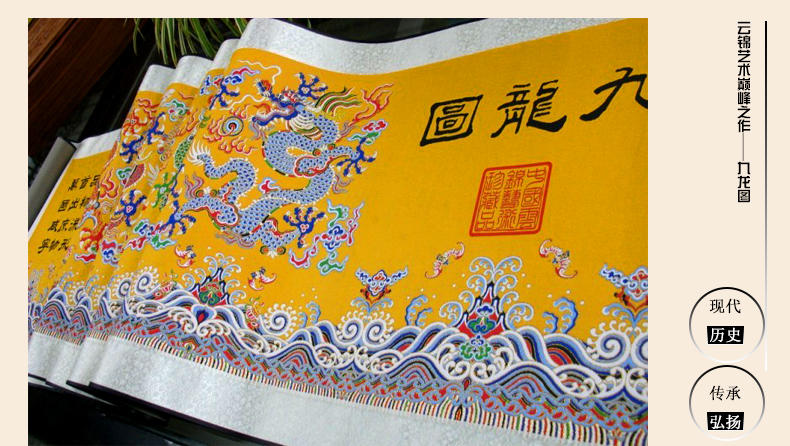 九龍圖
中國雲
錦藝術
珍藏品
云锦艺术巅峰之作——九龙图
现代
历史
传承
弘扬